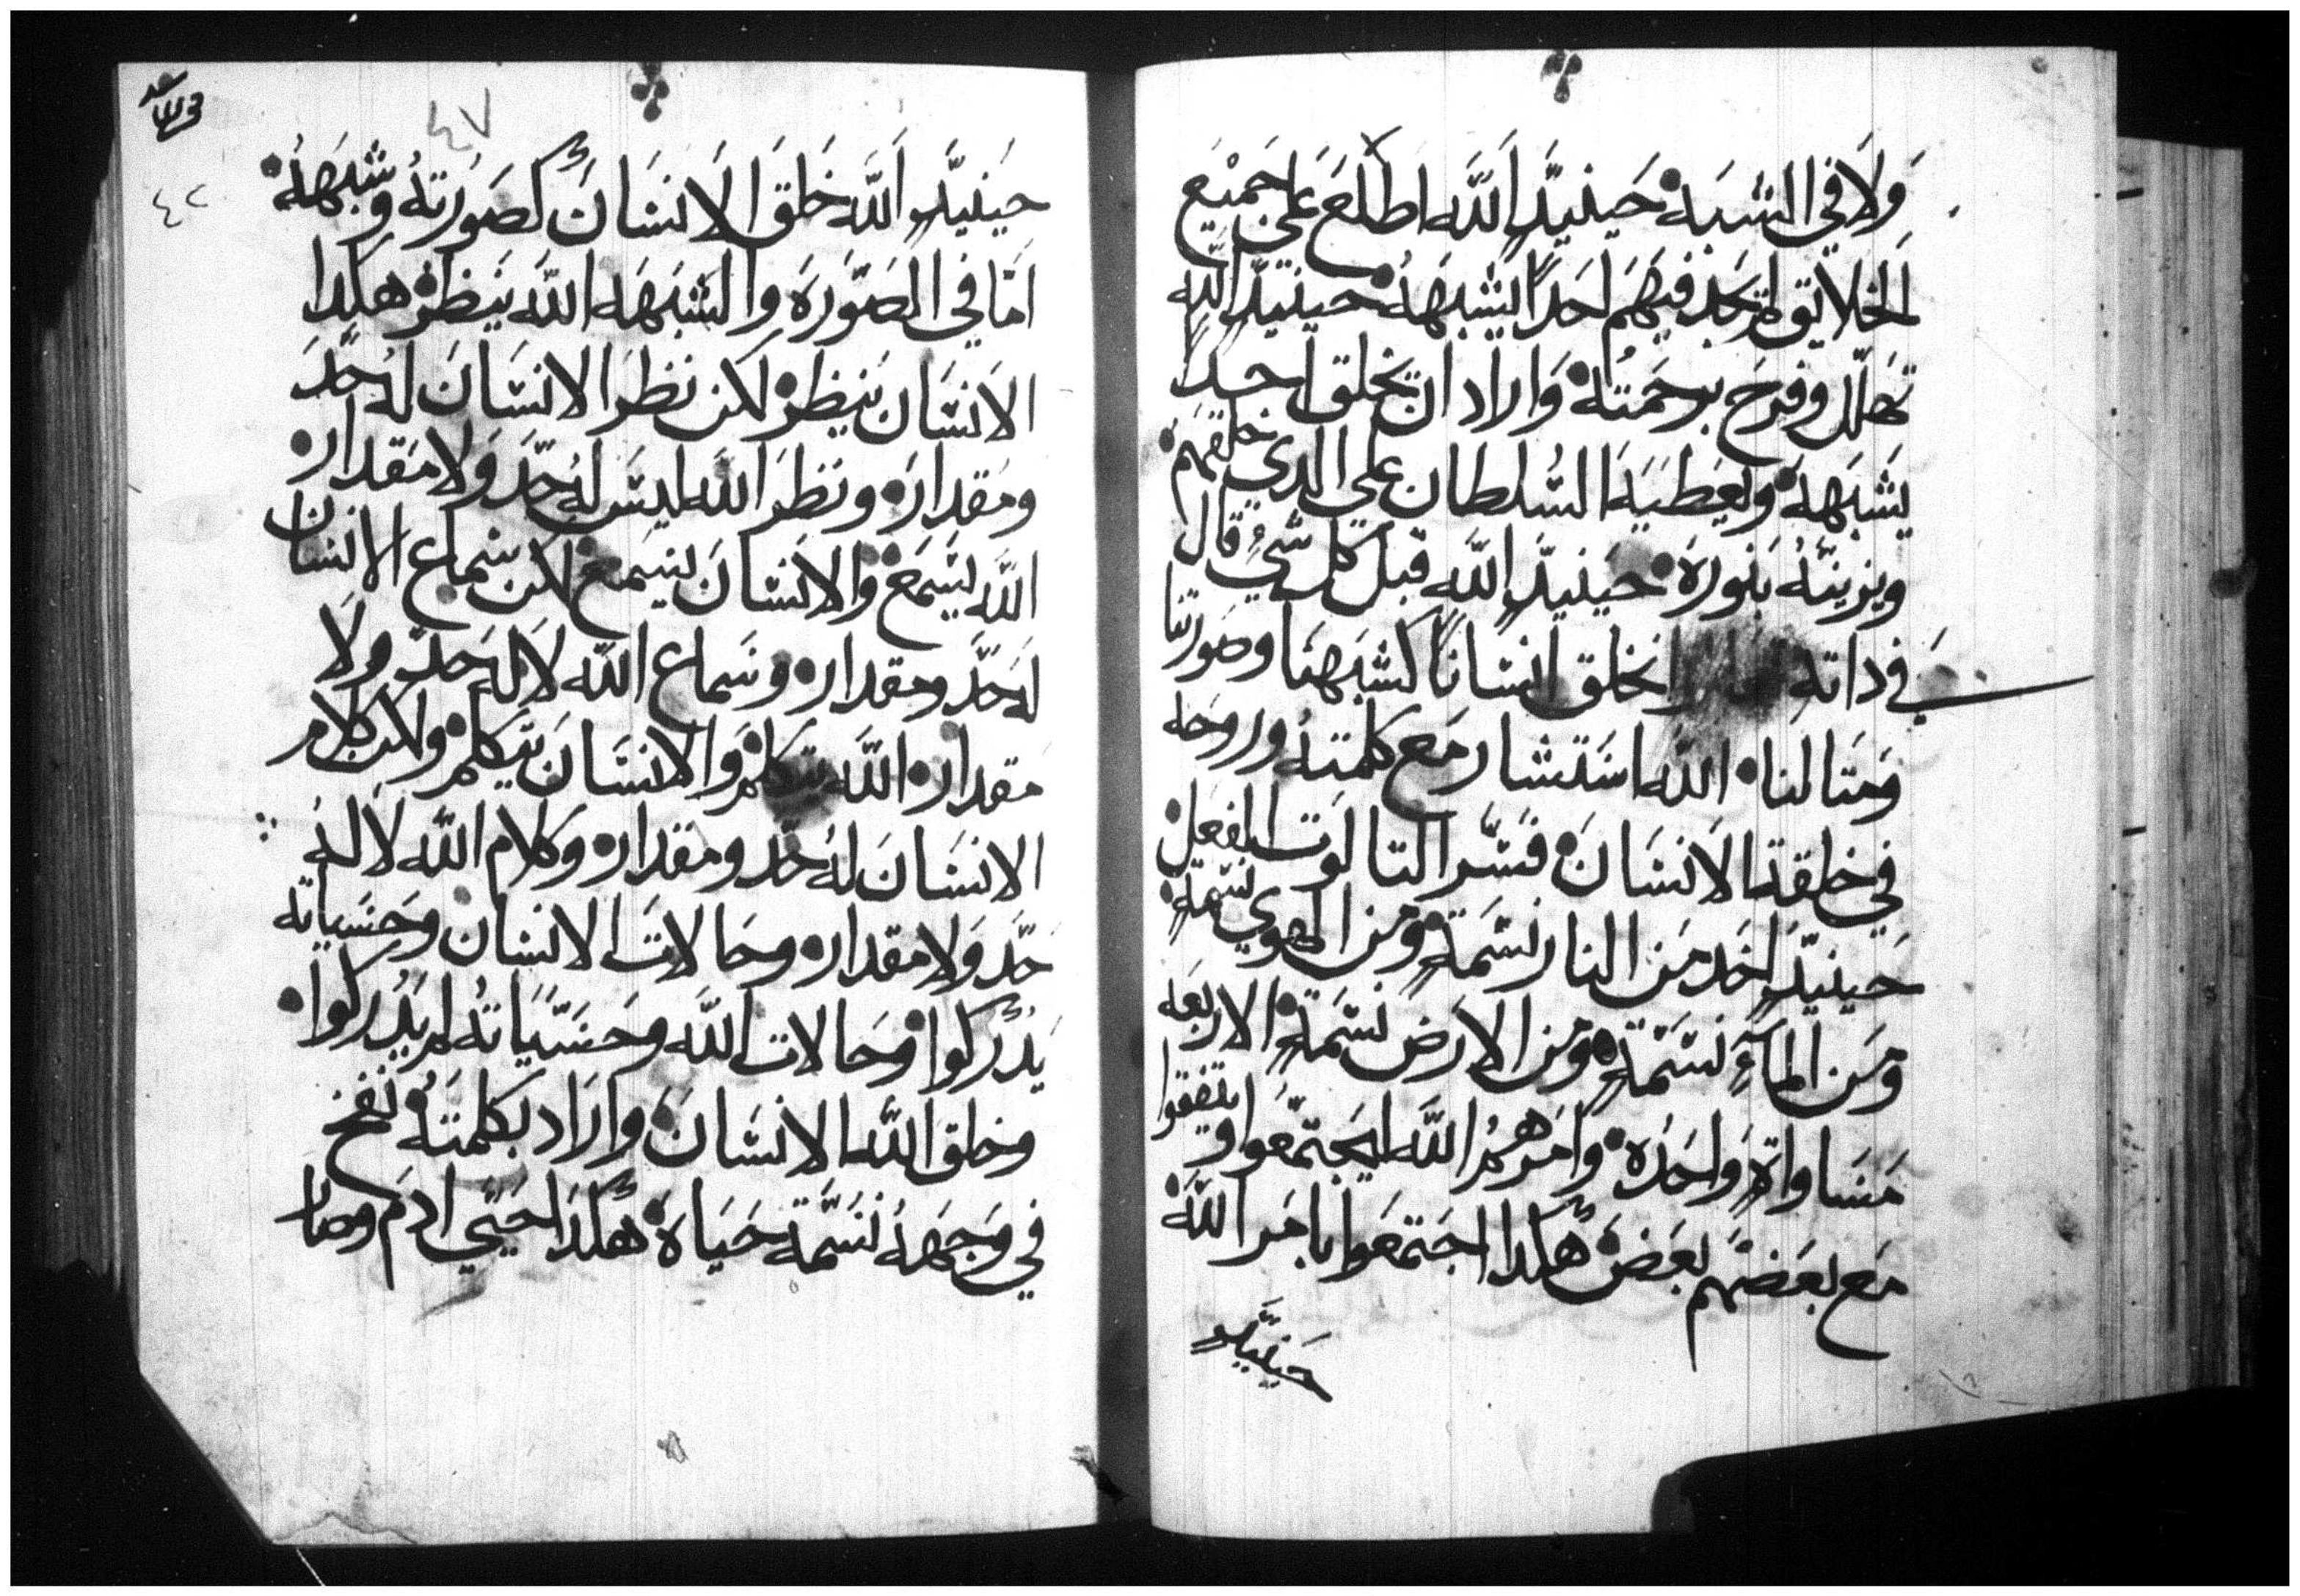 ولا في الشبه حينيدٍ الله اطلع على جميع
الخلايق لم يجد فيهم احدًا ليشبهه حينيدٍ الله
تهلل وفرح برحمته واراد ان يخلق احدًا
يشبهه ويعطيه السُلطان علي الدي خلقهم
ويزينهُ بنوره حينيدٍ الله قبل كل شيُ قال
في داته نخلق انسانًا كشبهنا وصورتنا
ومتالنا الله استشار مع كلمته وروحه
في خلقة الانسان فسّر التالوت الفعل
حينيدٍ اخد من النار نسمةٍ ومن الهوي نسمةٍ
ومن المآءِ نسمةٍ ومن الارض نسمةٍ الاربعه
مساواةٍ واحده وامرهمُ الله ليجتمعوا ويتفقوا
مع بعضهم بعض هكدا اجتمعوا بامر الله
حينيدٍ
٤٧
٤٢
حينيدٍ الله خلق الانسان كصورته وشبهه
امّا في الصّوره والشبهه الله ينظر هكدا
الانسان ينظر لكن نظر الانسان له حدّ
ومقداره ونظر الله ليس له حدّ ولا مقداره
الله يسمع والانسان يسمع لكن سماع الانسان
له حدّ ومقداره وسماع الله لا له حدّ ولا
مقداره الله يتكلم والانسان يتكلم ولكن كلام
الانسان له حدّ ومقداره وكلام الله لا له
حدّ ولا مقداره وحالات الانسان وحسياته
يدركوا وحالات الله وحسّياته لم يدركوا
وخلق الله الانسان واراد بكلمته نفخ
في وجههُ نسمة حياة هكدا حيّي ادم وصار